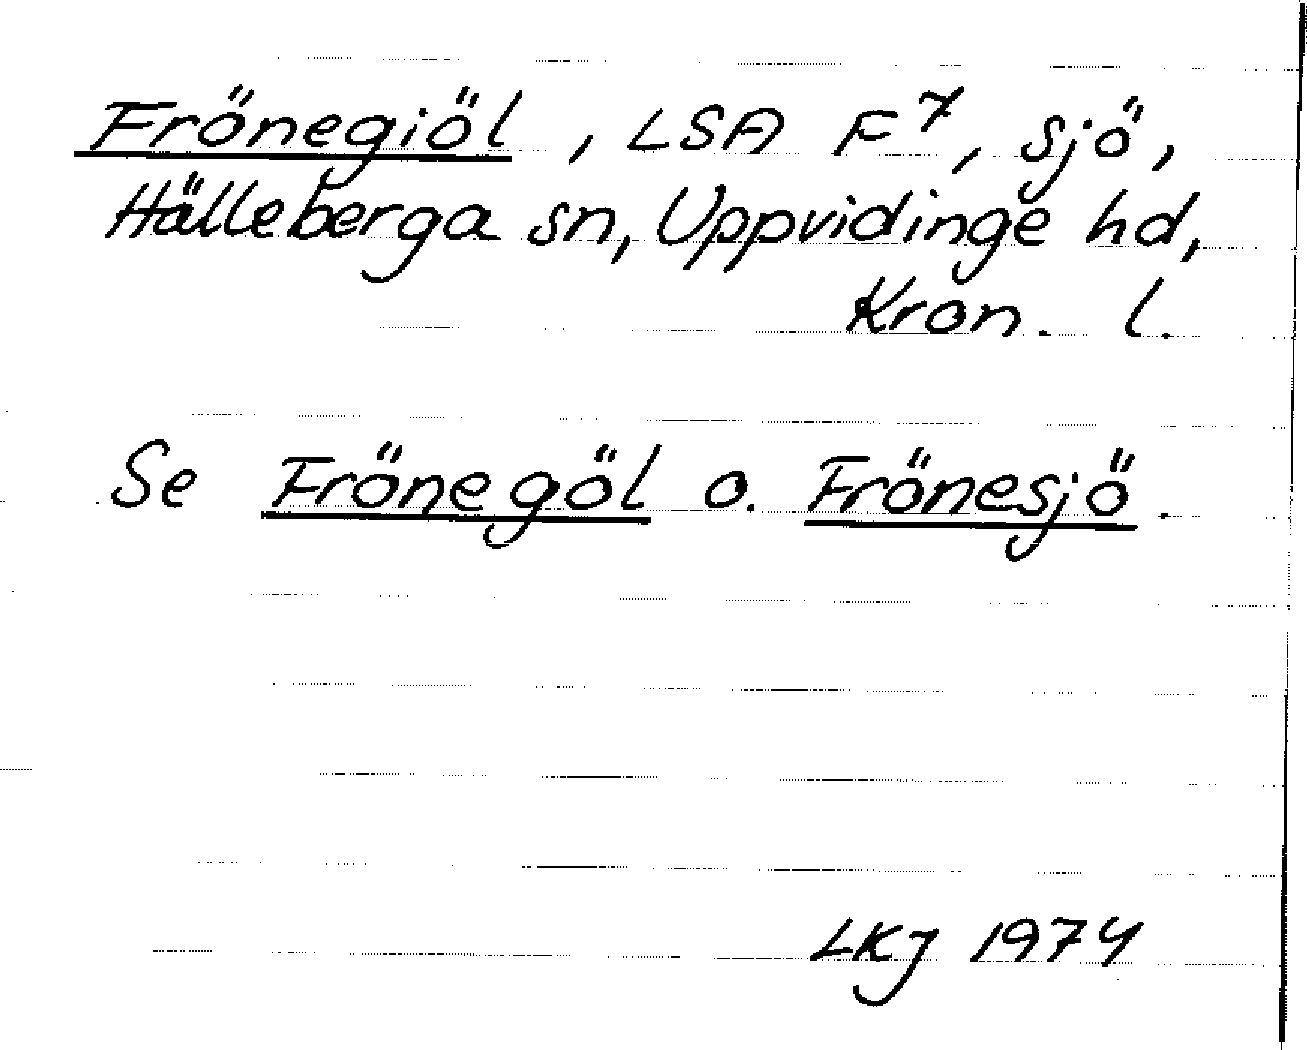 Frönegiöl, LSA F7, sjö,
Hälleberga sn, Uppvidinge hd,
Kron. l.
Se Frönegöl o. Frönesjö.
LKJ 1974